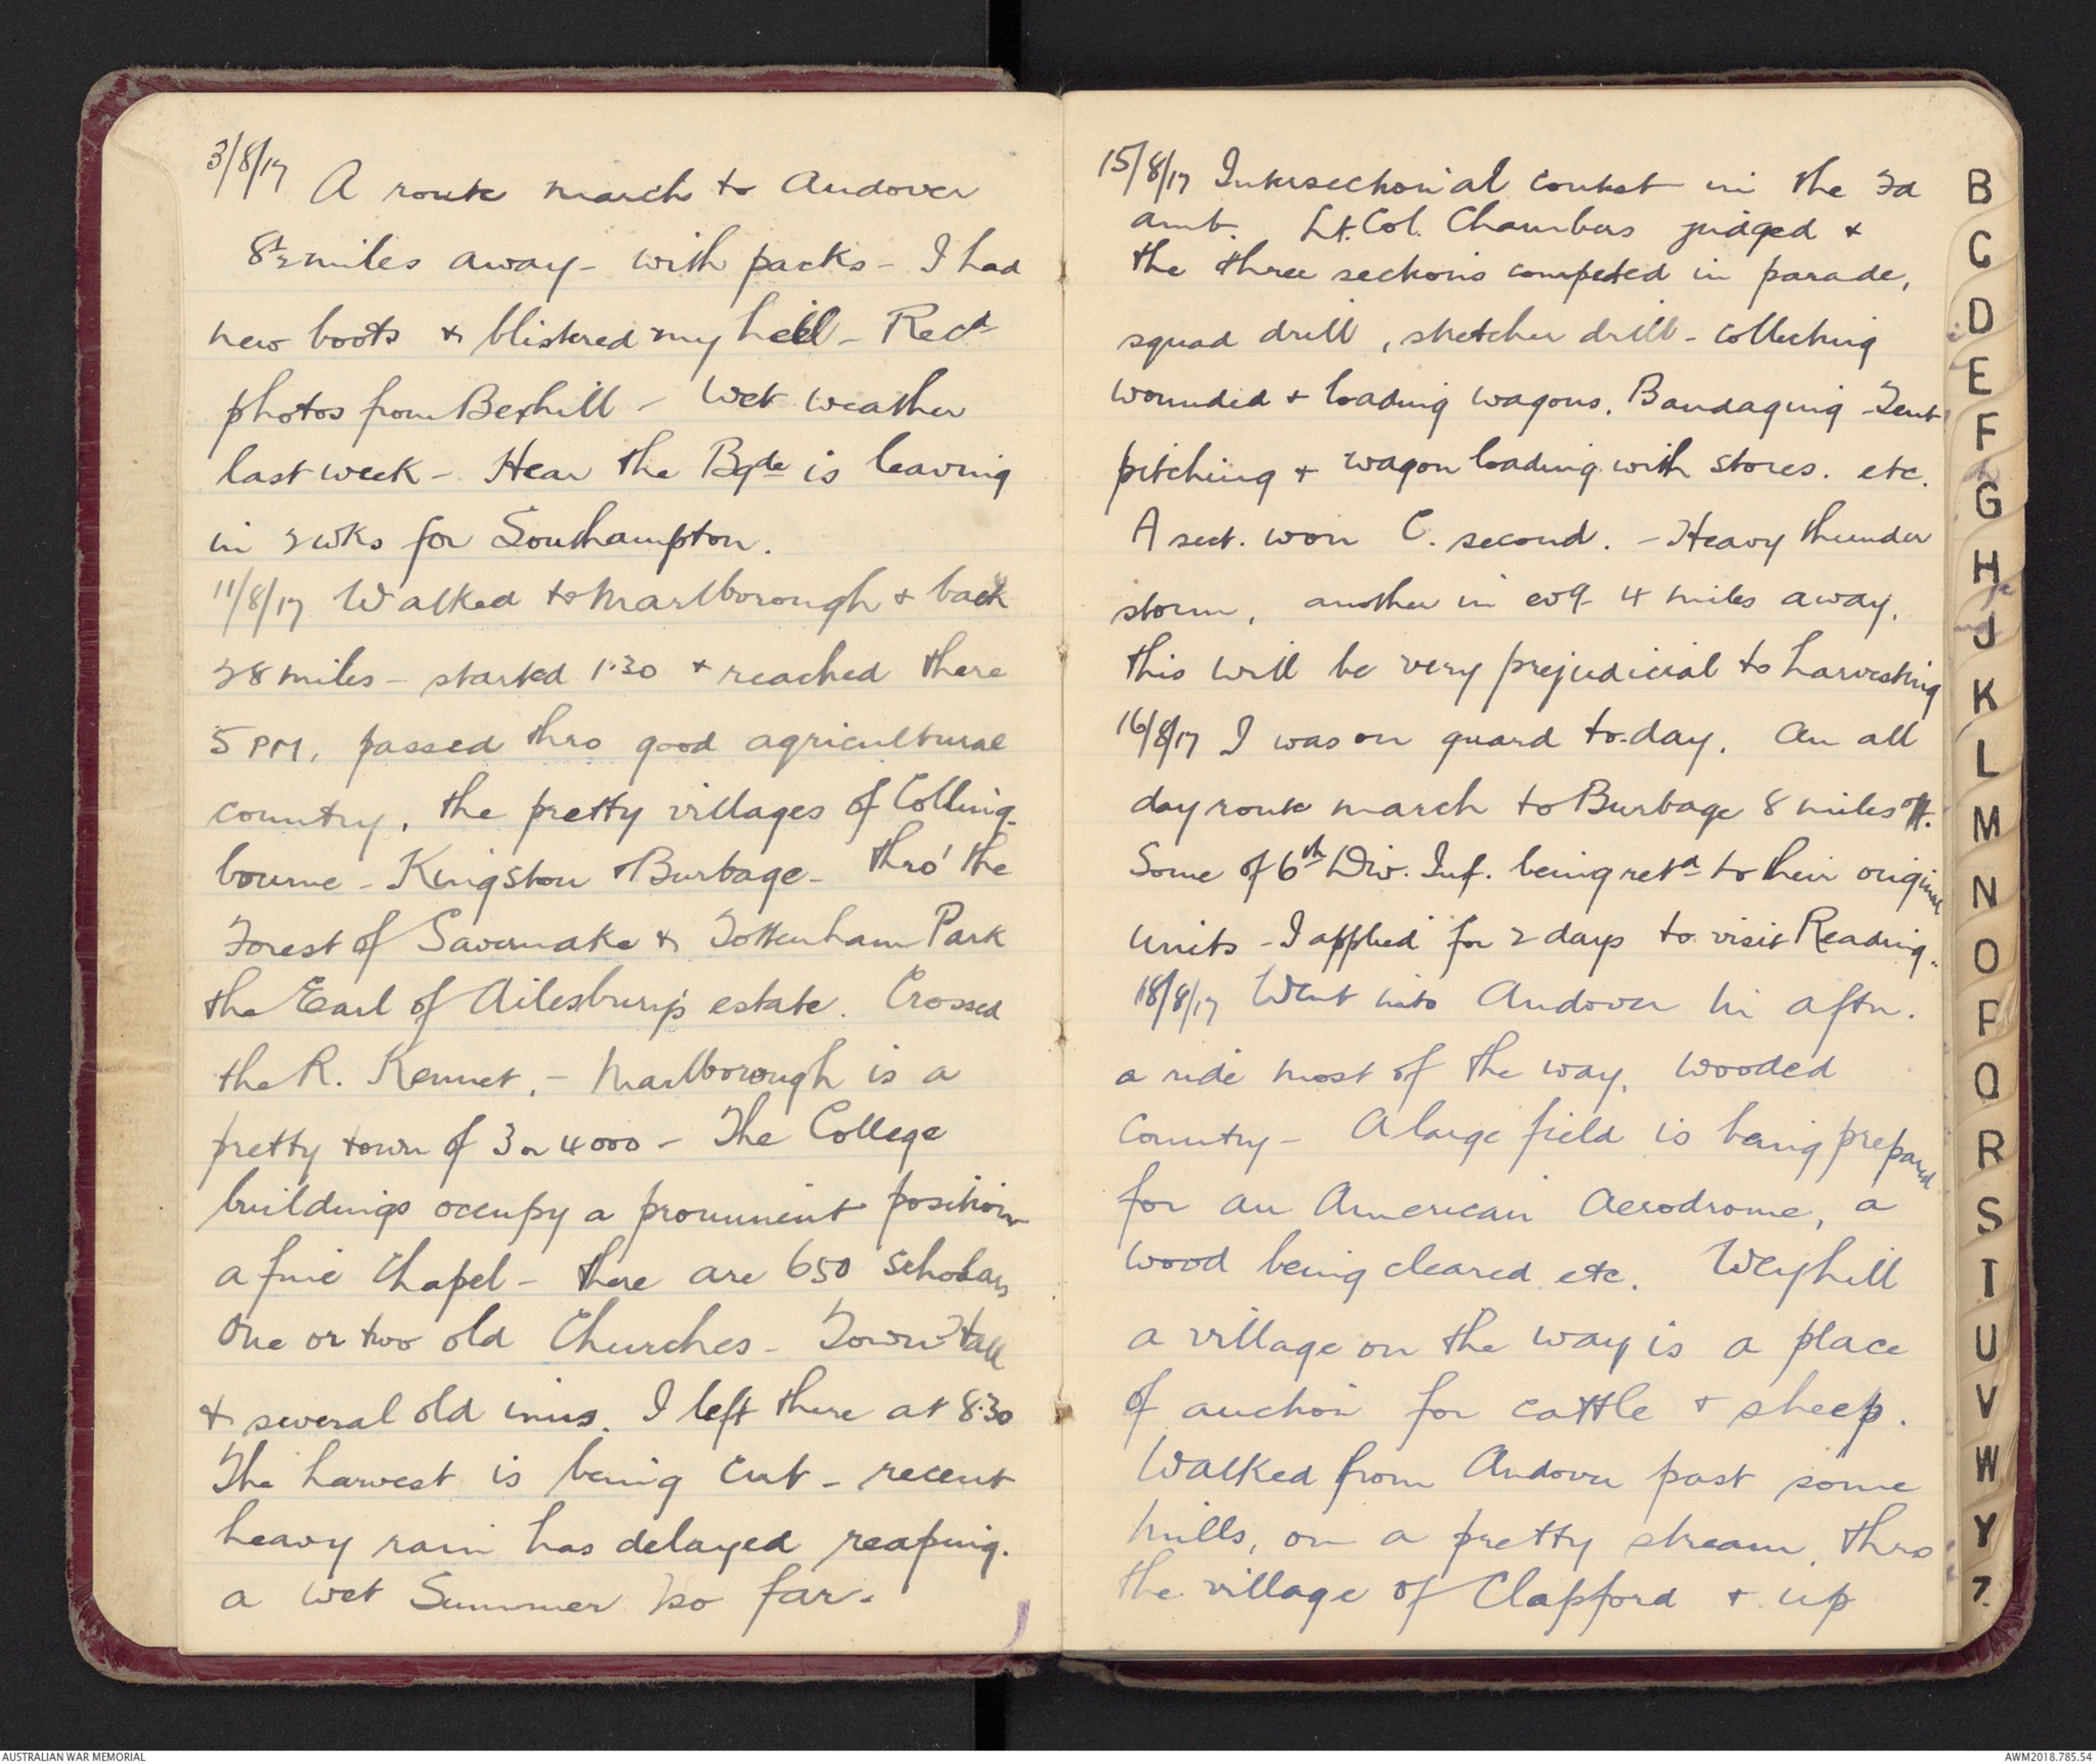 3/8/17 A route march to Andover
8½ miles away - with packs - I had
new boots & blistered my heel - Recd
photos from Bexhill - Wet weather
last week - Hear the Bgde is leaving
in 2 wks for Southampton.
11/8/17 Walked to Marlborough & back
28 miles - started 1.30 & reached there
5 PM, passed thro good agricultural
country, the pretty villages of Colling-
bourne - Kingston & Burbage - thro' the
Forest of Savernake & Tottenham Park
the Earl of Ailesbury's estate. Crossed
the R. Kennet, - Marlborough is a
pretty town of 3 or 4000 - The College
buildings occupy a prominent position
a fine Chapel - there are 650 scholars
One or two old Churches - Town Hall
& several old inns. I left there at 8.30
The harvest is being cut - recent
heavy rain has delayed reaping.
a wet Summer so far.
15/8/17 Intersectional contest in the Fd
amb. Lt. Col. Chambers judged &
the three sections competed in parade,
squad drill, stretcher drill - collecting
wounded & loading wagons. Bandaging - Tent
pitching & wagon loading with stores. etc.
A sect. won C. second. - Heavy thunder
storm, another in evg 4 miles away.
this will be very prejudicial to harvesting
16/8/17 I was on guard to-day. An all
day route march to Burbage 8 miles off.
Some of 6th Div. Inf. being retd to their original
units - I applied for 2 days to visit Reading.
18/8/17 Went into Andover in aftn.
a ride most of the way, wooded
country - A large field is being prepared
for an American Aerodrome, a
wood being cleared etc. Weyhill
a village on the way is a place
of auction for cattle & sheep.
Walked from Andover past some
mills, on a pretty stream, thro
the village of Clapford & up
B
C
D
E
F
G
H
J
K
L
M
N
O
P
Q
R
S
T
U
V
W
Y
Z
AUSTRALIAN WAR MEMORIAL
AWM2018.785.54